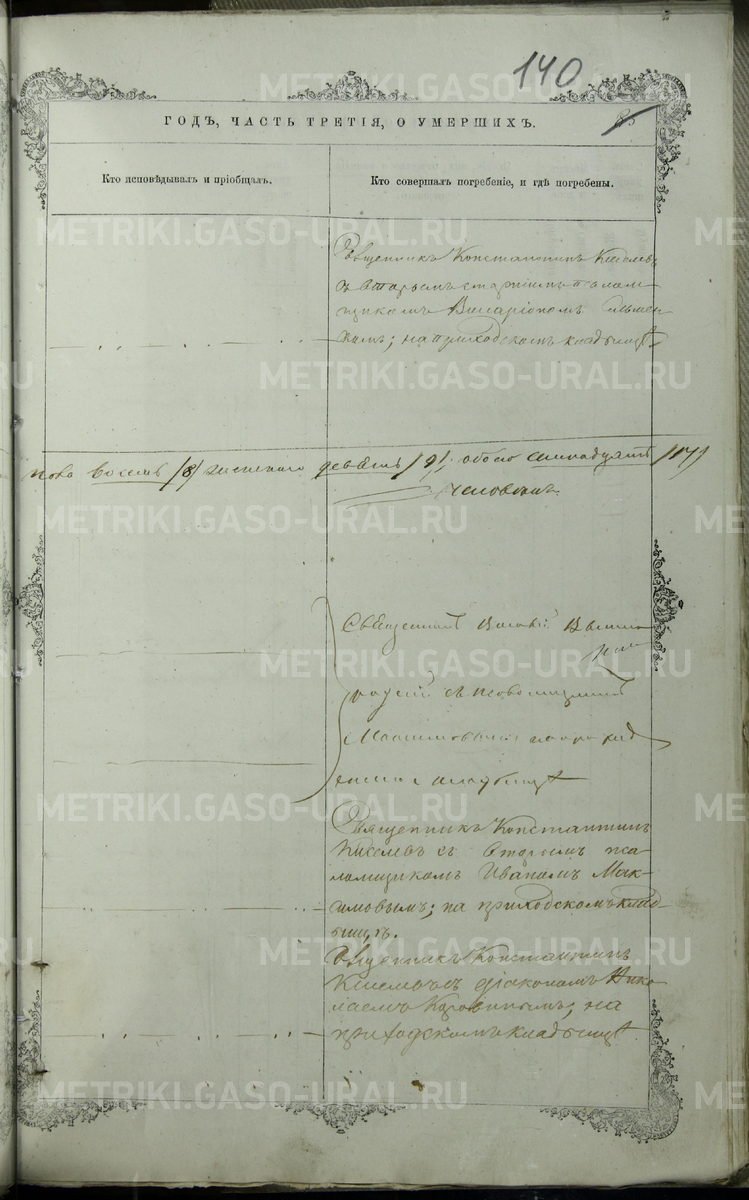 140
ГОДЪ, ЧАСТЬ ТРЕТІЯ, О УМЕРШИХЪ.
Кто исповѣдывалъ и пріобщалъ.
Кто совершалъ погребеніе, и гдѣ погребены.
Священникъ Константинъ Киселевъ
съ вторымъ старшимъ псалом-
щикомъ Виссаріономъ
на приходскомъ кладбищѣ
пола восемь /8/ женскаго девять /9/, обоего семнадцать /17/
человѣкъ.
Священникъ
съ псаломщикомъ
Максимовымъ на приход
скомъ кладбищѣ
Священникъ Константинъ
Киселевъ съ вторымъ пса-
ломщикомъ Иваномъ Мак-
симовымъ; на приходскомъ клад-
бищѣ.
Священникъ Константинъ
Киселевъ съ діакономъ Нико-
лаемъ Коровинымъ; на
приходскомъ кладбищѣ.
METRIKI.GASO-URAL.RU